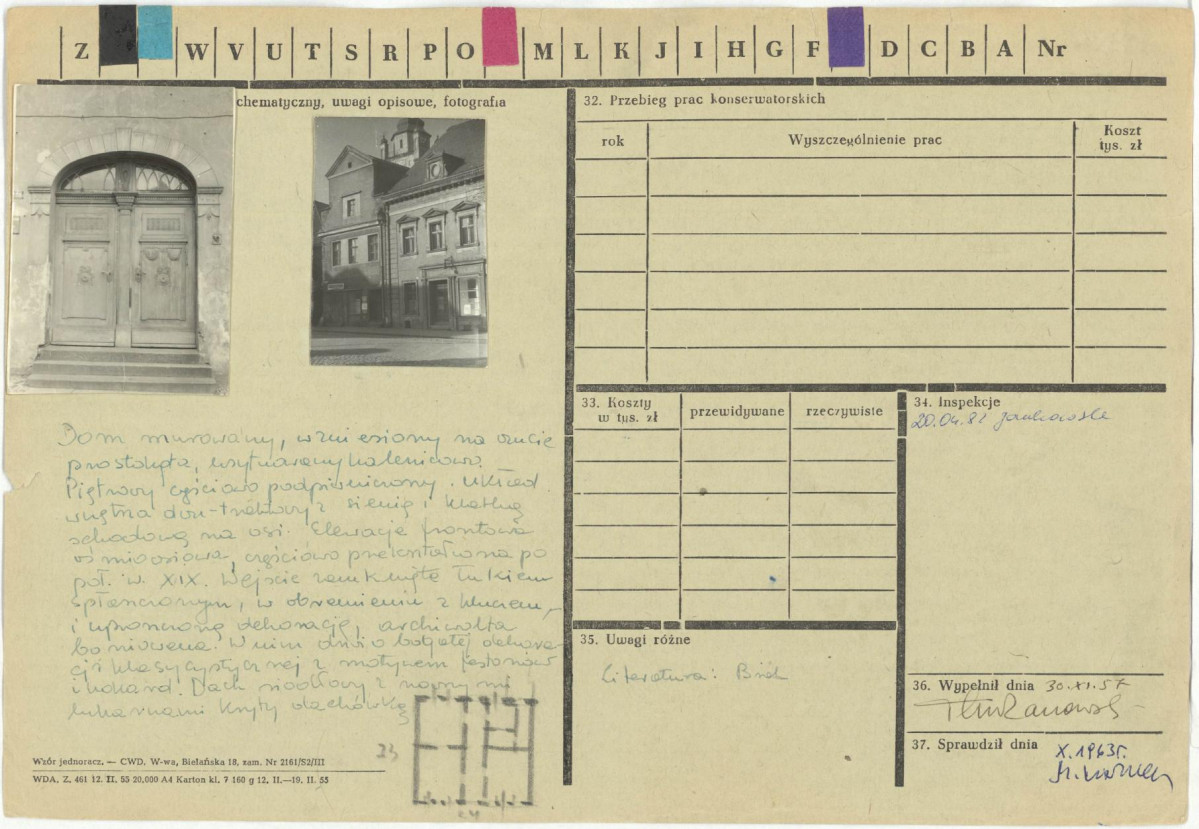 Z W V U T S R P O M L K J I H G F D C B A Nr
chematyczny, uwagi opisowe, fotografia
Dom murowany, wzniesiony na rzucie
prostokąta, usytuowany kalenicowo.
Piętrowy częściowo podpiwniczony. Układ
wnętrza dwu-traktowy z sienią i klatką
schodową na osi. Elewacja frontowa
ośmioosiowa, częściowo przekształcona po
poł. w. XIX. Wejście zamknięte łukiem
spłaszczonym, w obramieniu z kluczem,
i uproszczoną dekoracją, archiwolta
boniowana. W nim drzwi o bogatej dekora-
cji klasycystycznej z motywem festonów
i kokard. Dach siodłowy z nowymi
lukarnami kryty dachówką
23
24
Wzór jednoracz. — CWD, W-wa, Bielańska 18, zam. Nr 2161/S2/III
WDA. Z. 461 12. II. 55 20,000 A4 Karton kl. 7 160 g 12. II.—19. II. 55
32. Przebieg prac konserwatorskich
rok Wyszczególnienie prac Koszt
tys. zł
33. Koszty
w tys. zł przewidywane rzeczywiste
34. Inspekcje
20.04.82 Jankowska
35. Uwagi różne
Literatura:
36. Wypełnił dnia 30.XI.57
37. Sprawdził dnia
X.1963r.